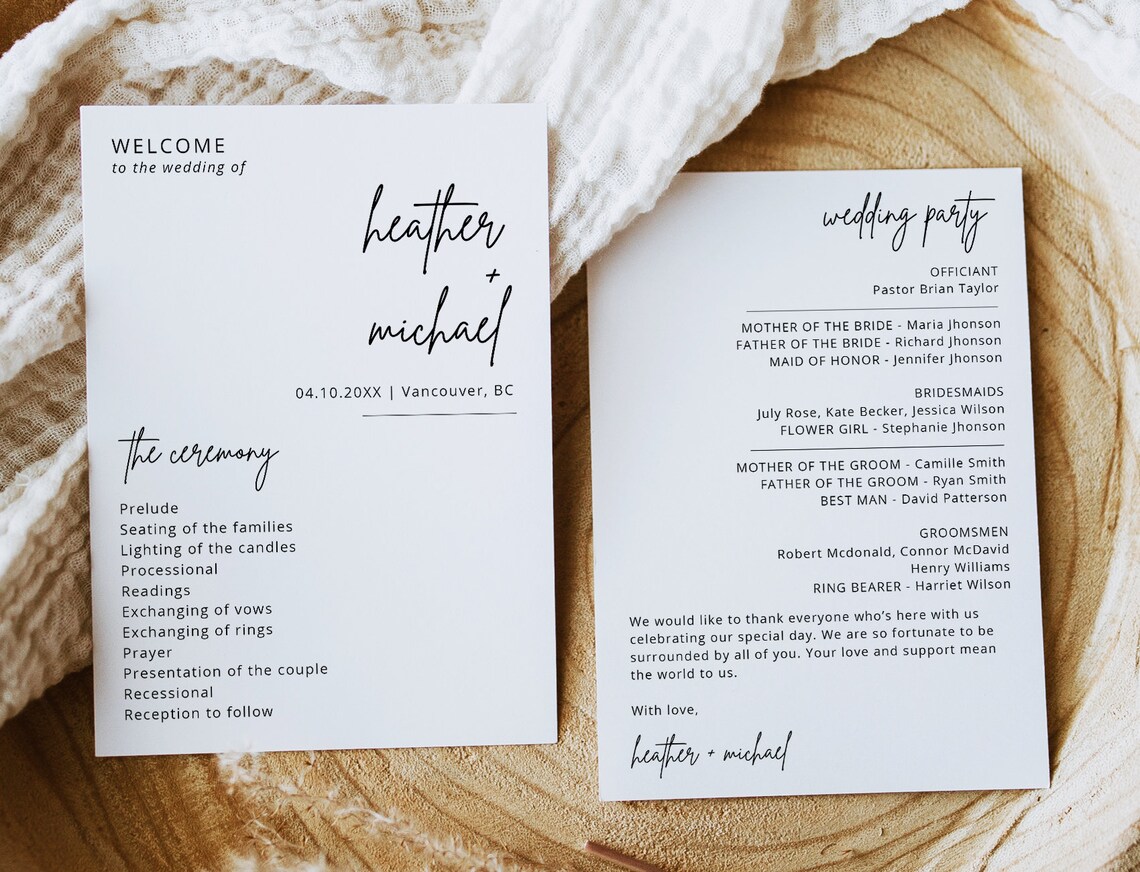 WELCOME
to the wedding of
heather
+
michael
04.10.20XX | Vancouver, BC
the ceremony
Prelude
Seating of the families
Lighting of the candles
Processional
Readings
Exchanging of vows
Exchanging of rings
Prayer
Presentation of the couple
Recessional
Reception to follow
wedding party
OFFICIANT
Pastor Brian Taylor
MOTHER OF THE BRIDE - Maria Jhonson
FATHER OF THE BRIDE - Richard Jhonson
MAID OF HONOR - Jennifer Jhonson
BRIDESMAIDS
July Rose, Kate Becker, Jessica Wilson
FLOWER GIRL - Stephanie Jhonson
MOTHER OF THE GROOM - Camille Smith
FATHER OF THE GROOM - Ryan Smith
BEST MAN - David Patterson
GROOMSMEN
Robert Mcdonald, Connor McDavid
Henry Williams
RING BEARER - Harriet Wilson
We would like to thank everyone who's here with us
celebrating our special day. We are so fortunate to be
surrounded by all of you. Your love and support mean
the world to us.
With love,
heather + michael